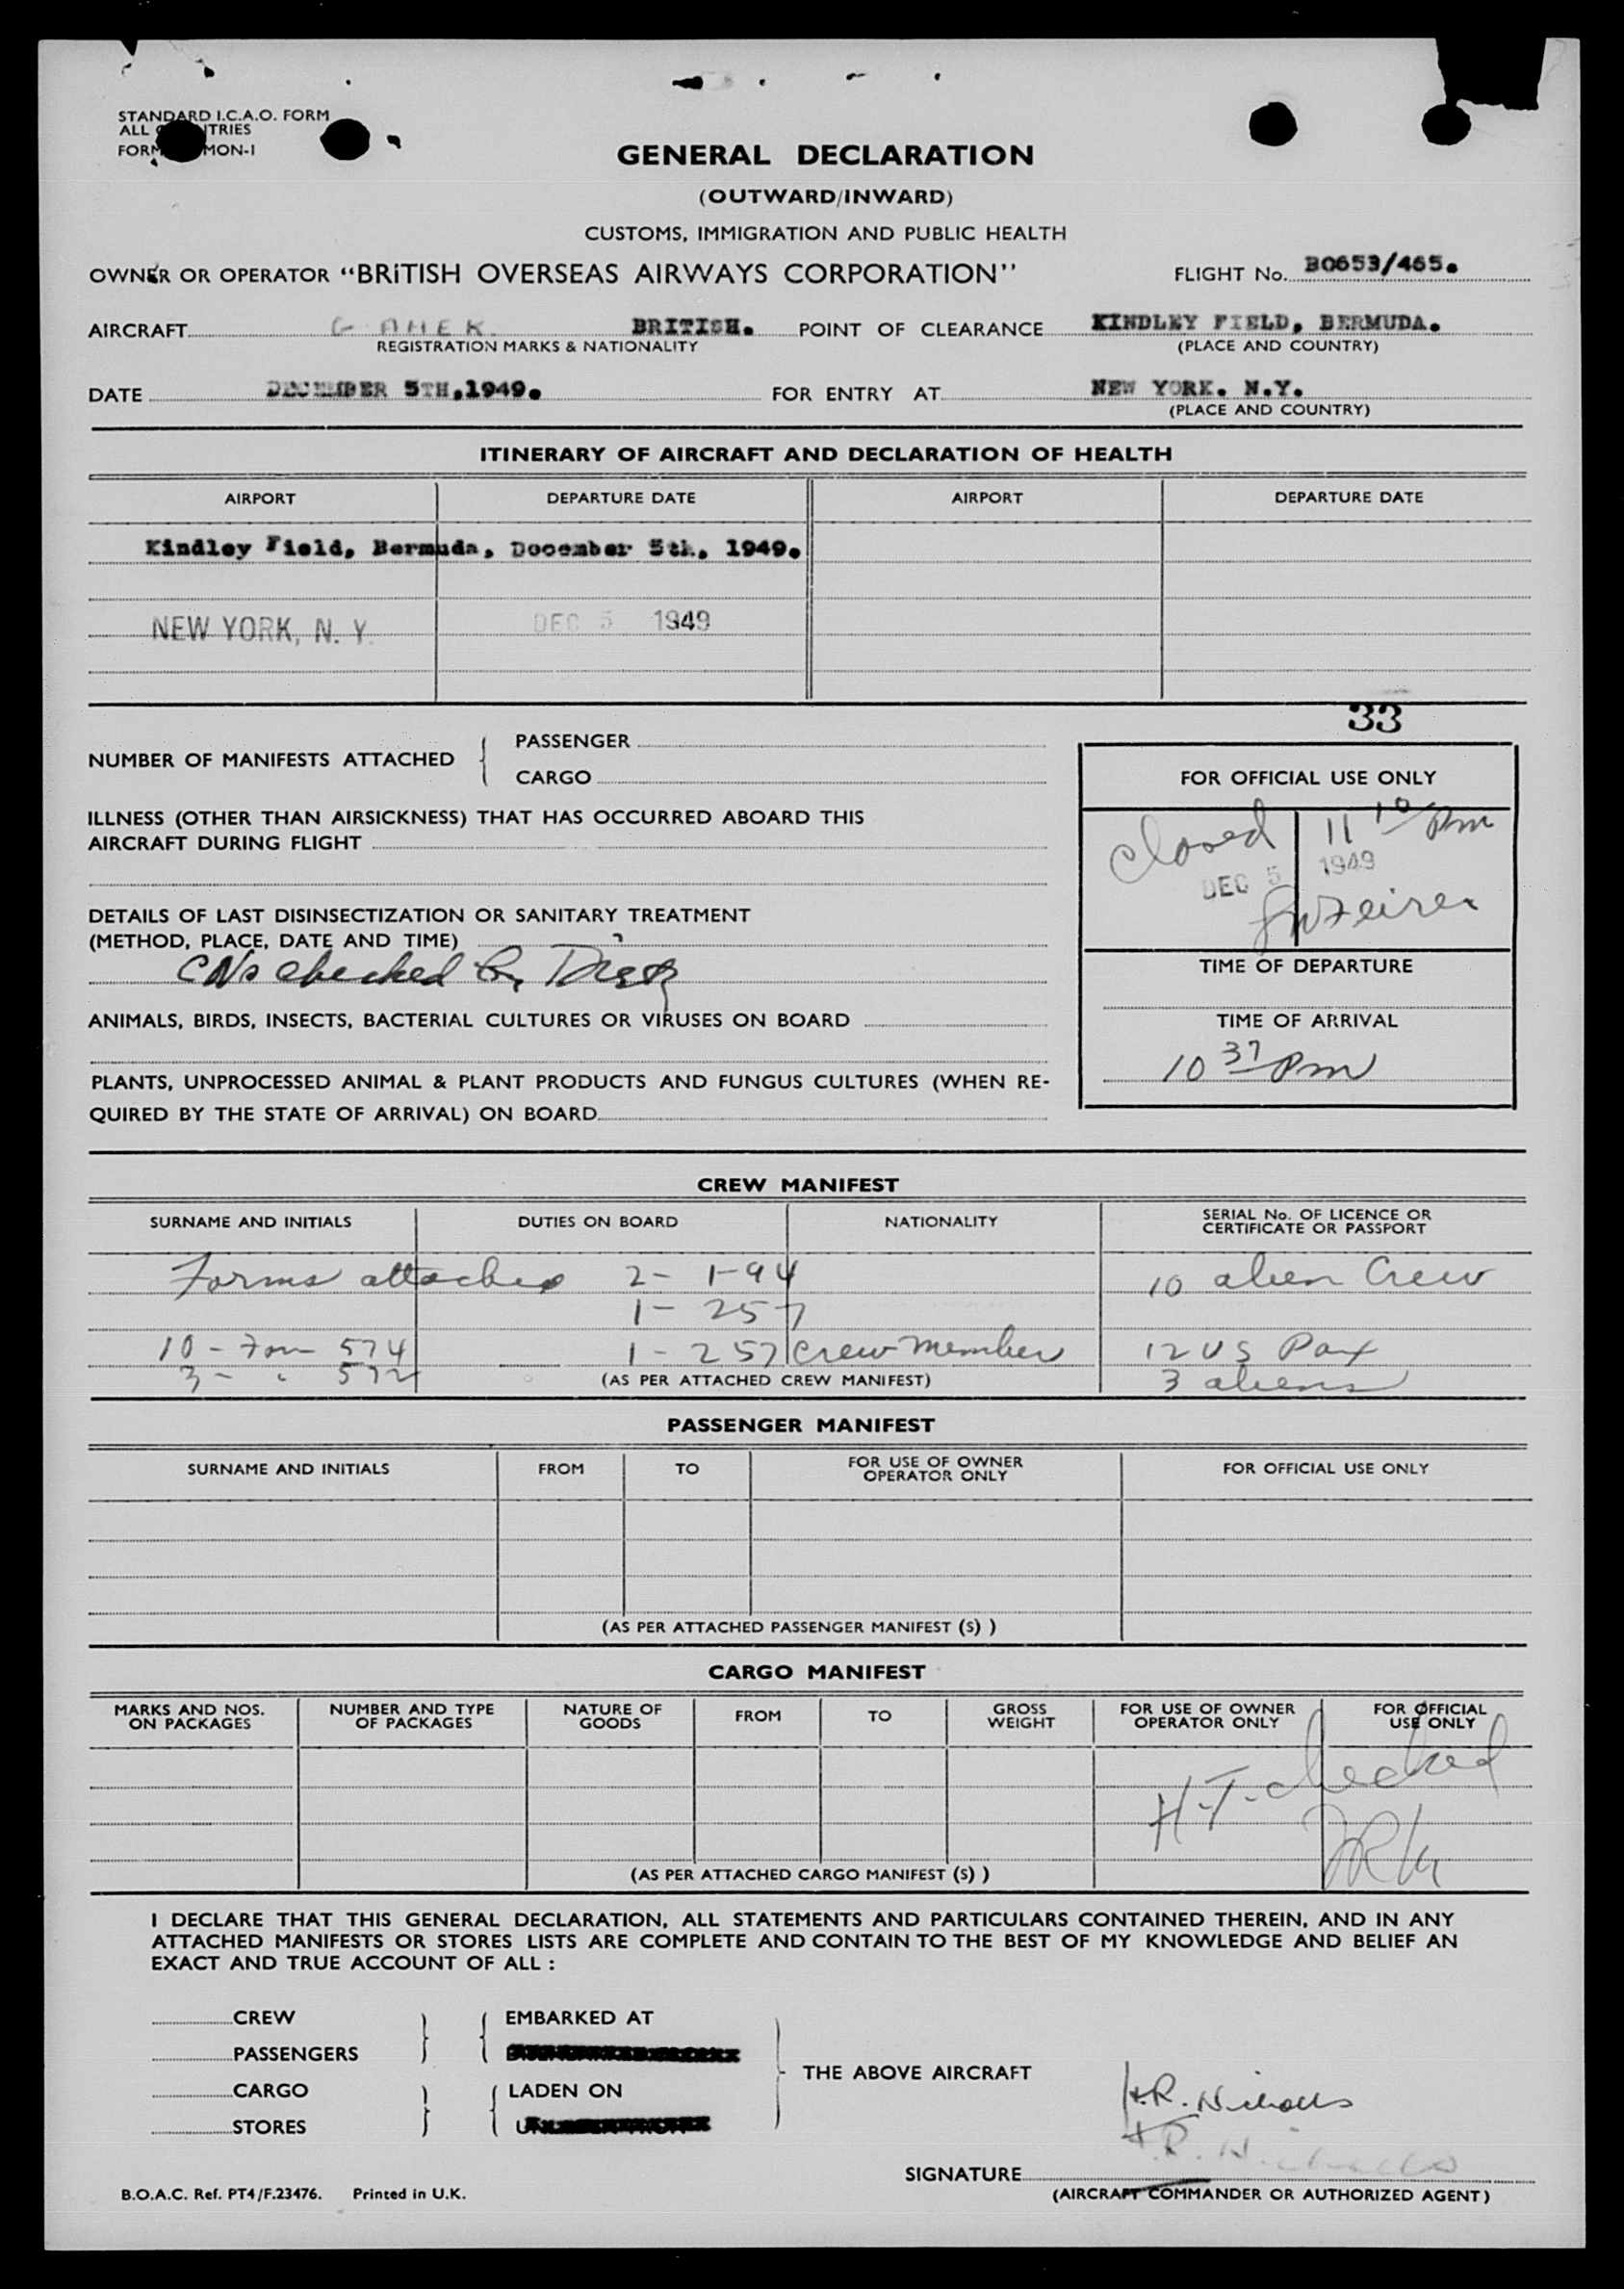 STANDARD I.C.A.O. FORM
ALL TRIES
FORM MON-1
GENERAL DECLARATION
(OUTWARD/INWARD)
CUSTOMS, IMMIGRATION AND PUBLIC HEALTH
OWNER OR OPERATOR "BRITISH OVERSEAS AIRWAYS CORPORATION" FLIGHT No. BO653/465.
AIRCRAFT BRITISH. POINT OF CLEARANCE KINDLEY FIELD, BERMUDA.
REGISTRATION MARKS & NATIONALITY (PLACE AND COUNTRY)
DATE DECEMBER 5TH,1949. FOR ENTRY AT NEW YORK. N.Y.
(PLACE AND COUNTRY)
ITINERARY OF AIRCRAFT AND DECLARATION OF HEALTH
AIRPORT DEPARTURE DATE AIRPORT DEPARTURE DATE
Kindley Field, Bermuda, December 5th, 1949.
NEW YORK, N. Y. DEC 5 1949
33
NUMBER OF MANIFESTS ATTACHED { PASSENGER
CARGO
FOR OFFICIAL USE ONLY
ILLNESS (OTHER THAN AIRSICKNESS) THAT HAS OCCURRED ABOARD THIS
AIRCRAFT DURING FLIGHT
closed 11 10 Pm
DEC 5 1949
DETAILS OF LAST DISINSECTIZATION OR SANITARY TREATMENT
(METHOD, PLACE, DATE AND TIME)
checked
TIME OF DEPARTURE
ANIMALS, BIRDS, INSECTS, BACTERIAL CULTURES OR VIRUSES ON BOARD
TIME OF ARRIVAL
10 37 Pm
PLANTS, UNPROCESSED ANIMAL & PLANT PRODUCTS AND FUNGUS CULTURES (WHEN RE-
QUIRED BY THE STATE OF ARRIVAL) ON BOARD
CREW MANIFEST
SURNAME AND INITIALS DUTIES ON BOARD NATIONALITY SERIAL No. OF LICENCE OR
CERTIFICATE OR PASSPORT
Forms attached 2- I-94 10 alien Crew
1- 257
10 - Form 574 1- 257 crew member 12 US Pax
3- " 572 (AS PER ATTACHED CREW MANIFEST) 3 aliens
PASSENGER MANIFEST
SURNAME AND INITIALS FROM TO FOR USE OF OWNER
OPERATOR ONLY FOR OFFICIAL USE ONLY
(AS PER ATTACHED PASSENGER MANIFEST (S) )
CARGO MANIFEST
MARKS AND NOS.
ON PACKAGES NUMBER AND TYPE
OF PACKAGES NATURE OF
GOODS FROM TO GROSS
WEIGHT FOR USE OF OWNER
OPERATOR ONLY FOR OFFICIAL
USE ONLY
H.T. checked
(AS PER ATTACHED CARGO MANIFEST (S) )
I DECLARE THAT THIS GENERAL DECLARATION, ALL STATEMENTS AND PARTICULARS CONTAINED THEREIN, AND IN ANY
ATTACHED MANIFESTS OR STORES LISTS ARE COMPLETE AND CONTAIN TO THE BEST OF MY KNOWLEDGE AND BELIEF AN
EXACT AND TRUE ACCOUNT OF ALL :
CREW } { EMBARKED AT
PASSENGERS
THE ABOVE AIRCRAFT
CARGO } { LADEN ON
STORES
H.R. Nicholls
H.R. Nicholls
SIGNATURE
(AIRCRAFT COMMANDER OR AUTHORIZED AGENT)
B.O.A.C. Ref. PT4/F.23476. Printed in U.K.